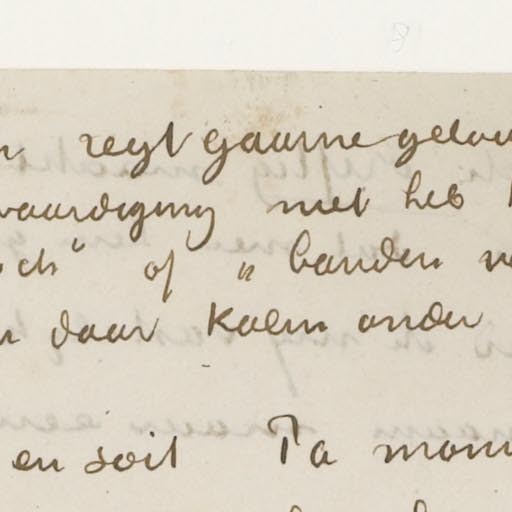 regt gaarne gelou
vaardiging niet heb
ch" of "banden
daar kalm onder
en soit Ta mon